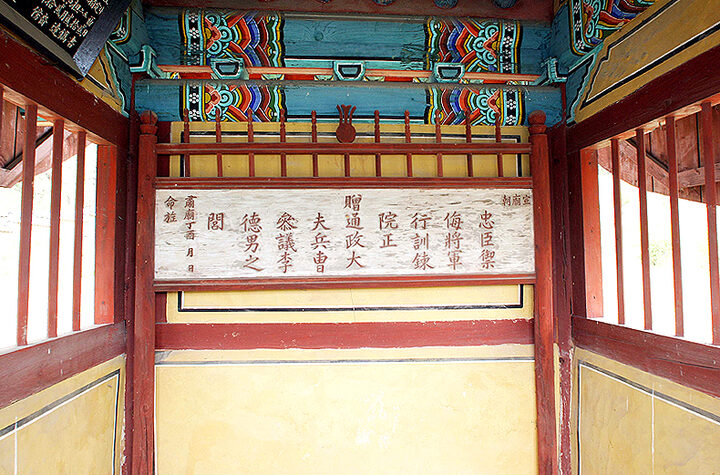 宣廟朝
忠臣禦
侮將軍
行訓鍊
院正
贈通政大
夫兵曹
叅議李
德男之
閭
肅廟丁酉 月 日
命旌